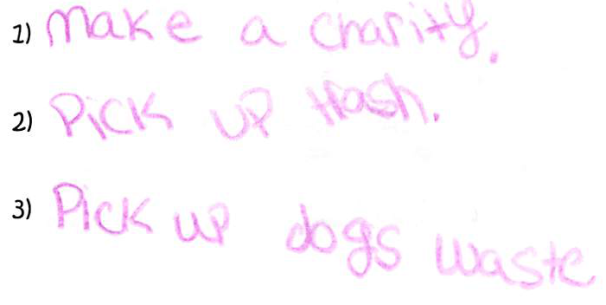 1) Make a charity.
2) Pick up trash.
3) Pick up dogs waste